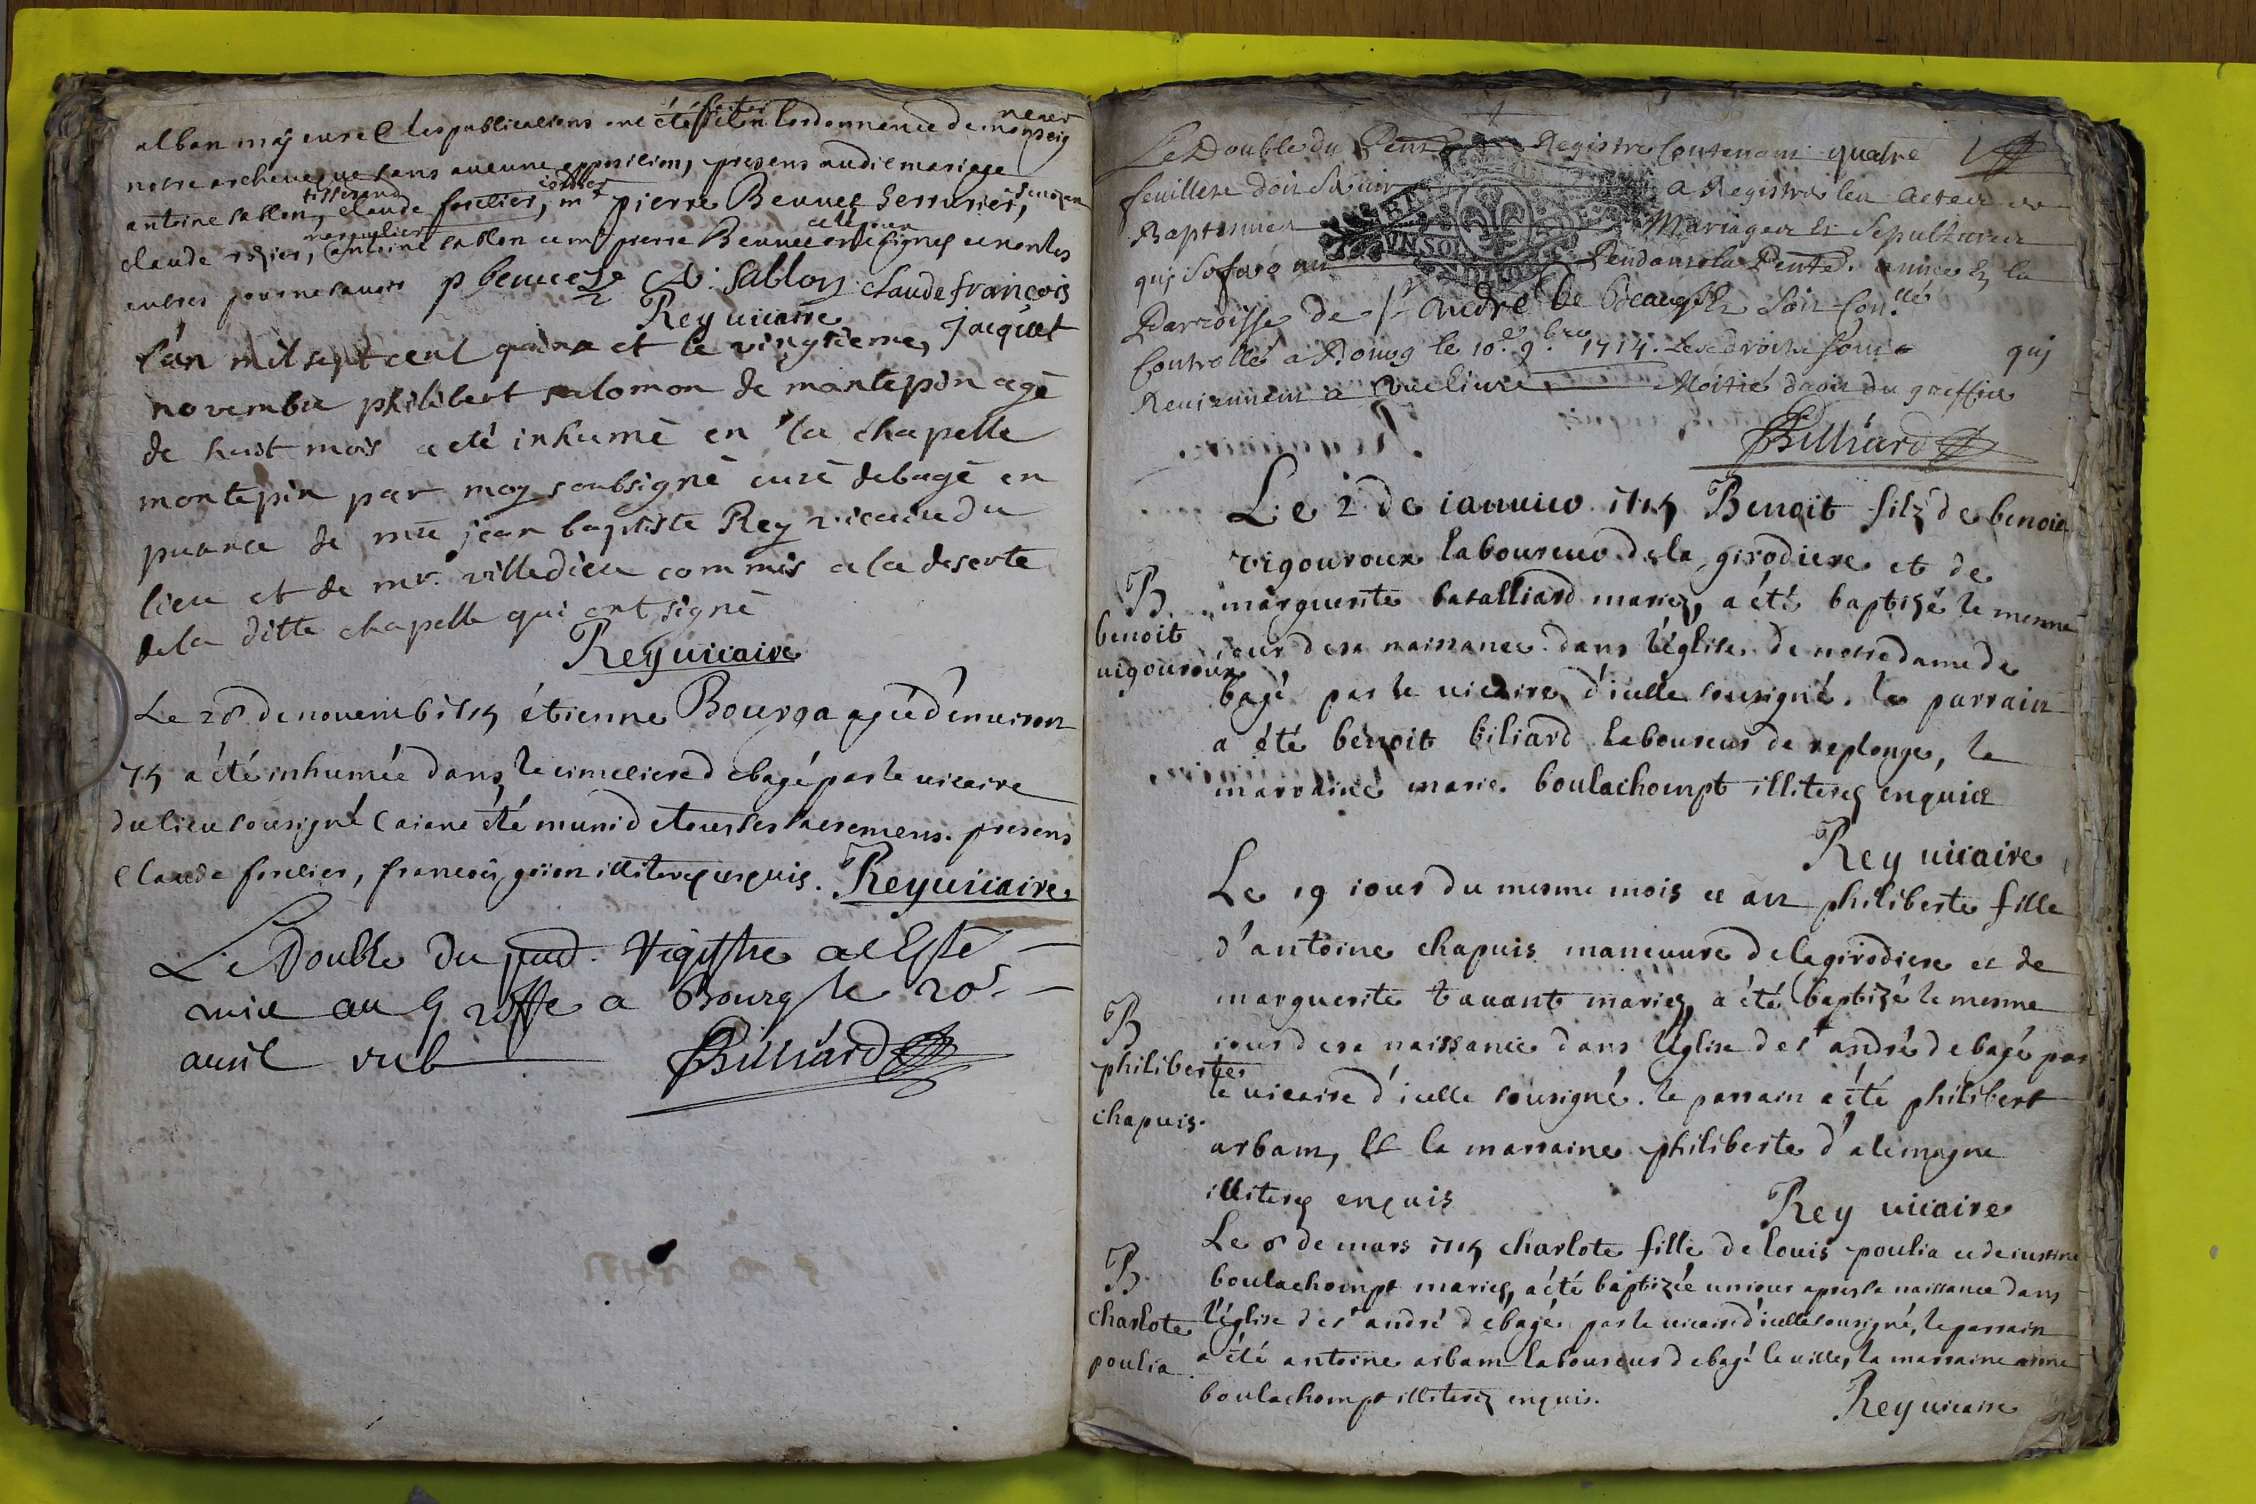 alban majeure & les publications ont été faites selon lordonnance de monseigneur
notre archeveque sans aucune opposition, presens audit mariage
antoine sablon tisserand, claude forilier, mr pierre Benuet serrurier,
claude rozier, antoine sablon et mr pierre Beuuet ont signes et non les
autres pour ne savoir p beuuet A. Sablon claude francois
Rey uicaire Jacquet
L'an mil sept cent quinze et le vingtieme
novembre philibert salomon de montepin agé
de huit mois a eté inhumé en la chapelle
montepin par moy soubsigné curé debagé en
pnance de mre jean baptiste Rey vicaire du
lieu et de mr. villedieu commis a la deserte
de la ditte chapelle qui ont signé
Rey uicaire
Le 28 de novemb 1715 étienne Bourga agée d'enuiron
75 a été inhumée dans le cimetiere debagé par le uicaire
du lieu sousigné aiant été muni de tous ses sacremens. presens
Claude forilier, francois goion illiterés enquis. Rey uicaire
Le Double du pnt. Registre a Esté
mis au Greffe a Bourg le 20e
auril 1716 Billiard
Le Double du Pent Registre Contenant quatre
feuillets doit seruir a Registrer les actes de
Baptesmes Mariages et Sepultures
qui se feront Pendant la Pente. année En la
Parroisse de St André de Beaugé Son Conllé
Controllé a Bourg le 10e 9bre 1714. Les droits sont qui
Reuiennent a une liure Moitié daou du greffier
Billiard
Le 2 de ianuier 1715 Benoit filz de benoit
vigouroux laboureur de la girodiere et de
B marguerite bataillard mariez, a été baptizé le mesme
benoit iour de sa naissance dans l'église de notre dame de
uigouroux bagé par le uicaire d'icelle sousigné. le parrain
a été benoit biliard laboureur de replonge, la
marraine marie boulachompt illiterez enquis
Rey uicaire
Le 19 iour du mesme mois et an philiberte fille
d'antoine chapuis manuure de la girodiere et de
marguerite tauant mariez, a été baptizé le mesme
B iour de sa naissance dans l'église de st andré de bagé par
philiberte le uicaire d'icelle sousigné. le parrain a été philibert
chapuis. arbam, et la marraine philiberte d'alemagne
illiterez enquis Rey uicaire
Le 8 de mars 1715 charlote fille de louis poulia et de iustine
B boulachompt mariez, a été baptizée un iour apres sa naissance dans
charlote l'église de st andré de bagé par le uicaire d'icelle sousigné, le parrain
poulia a été antoine arbam laboureur de bagé la ville, la marraine anne
boulachompt illiterez enquis. Rey uicaire